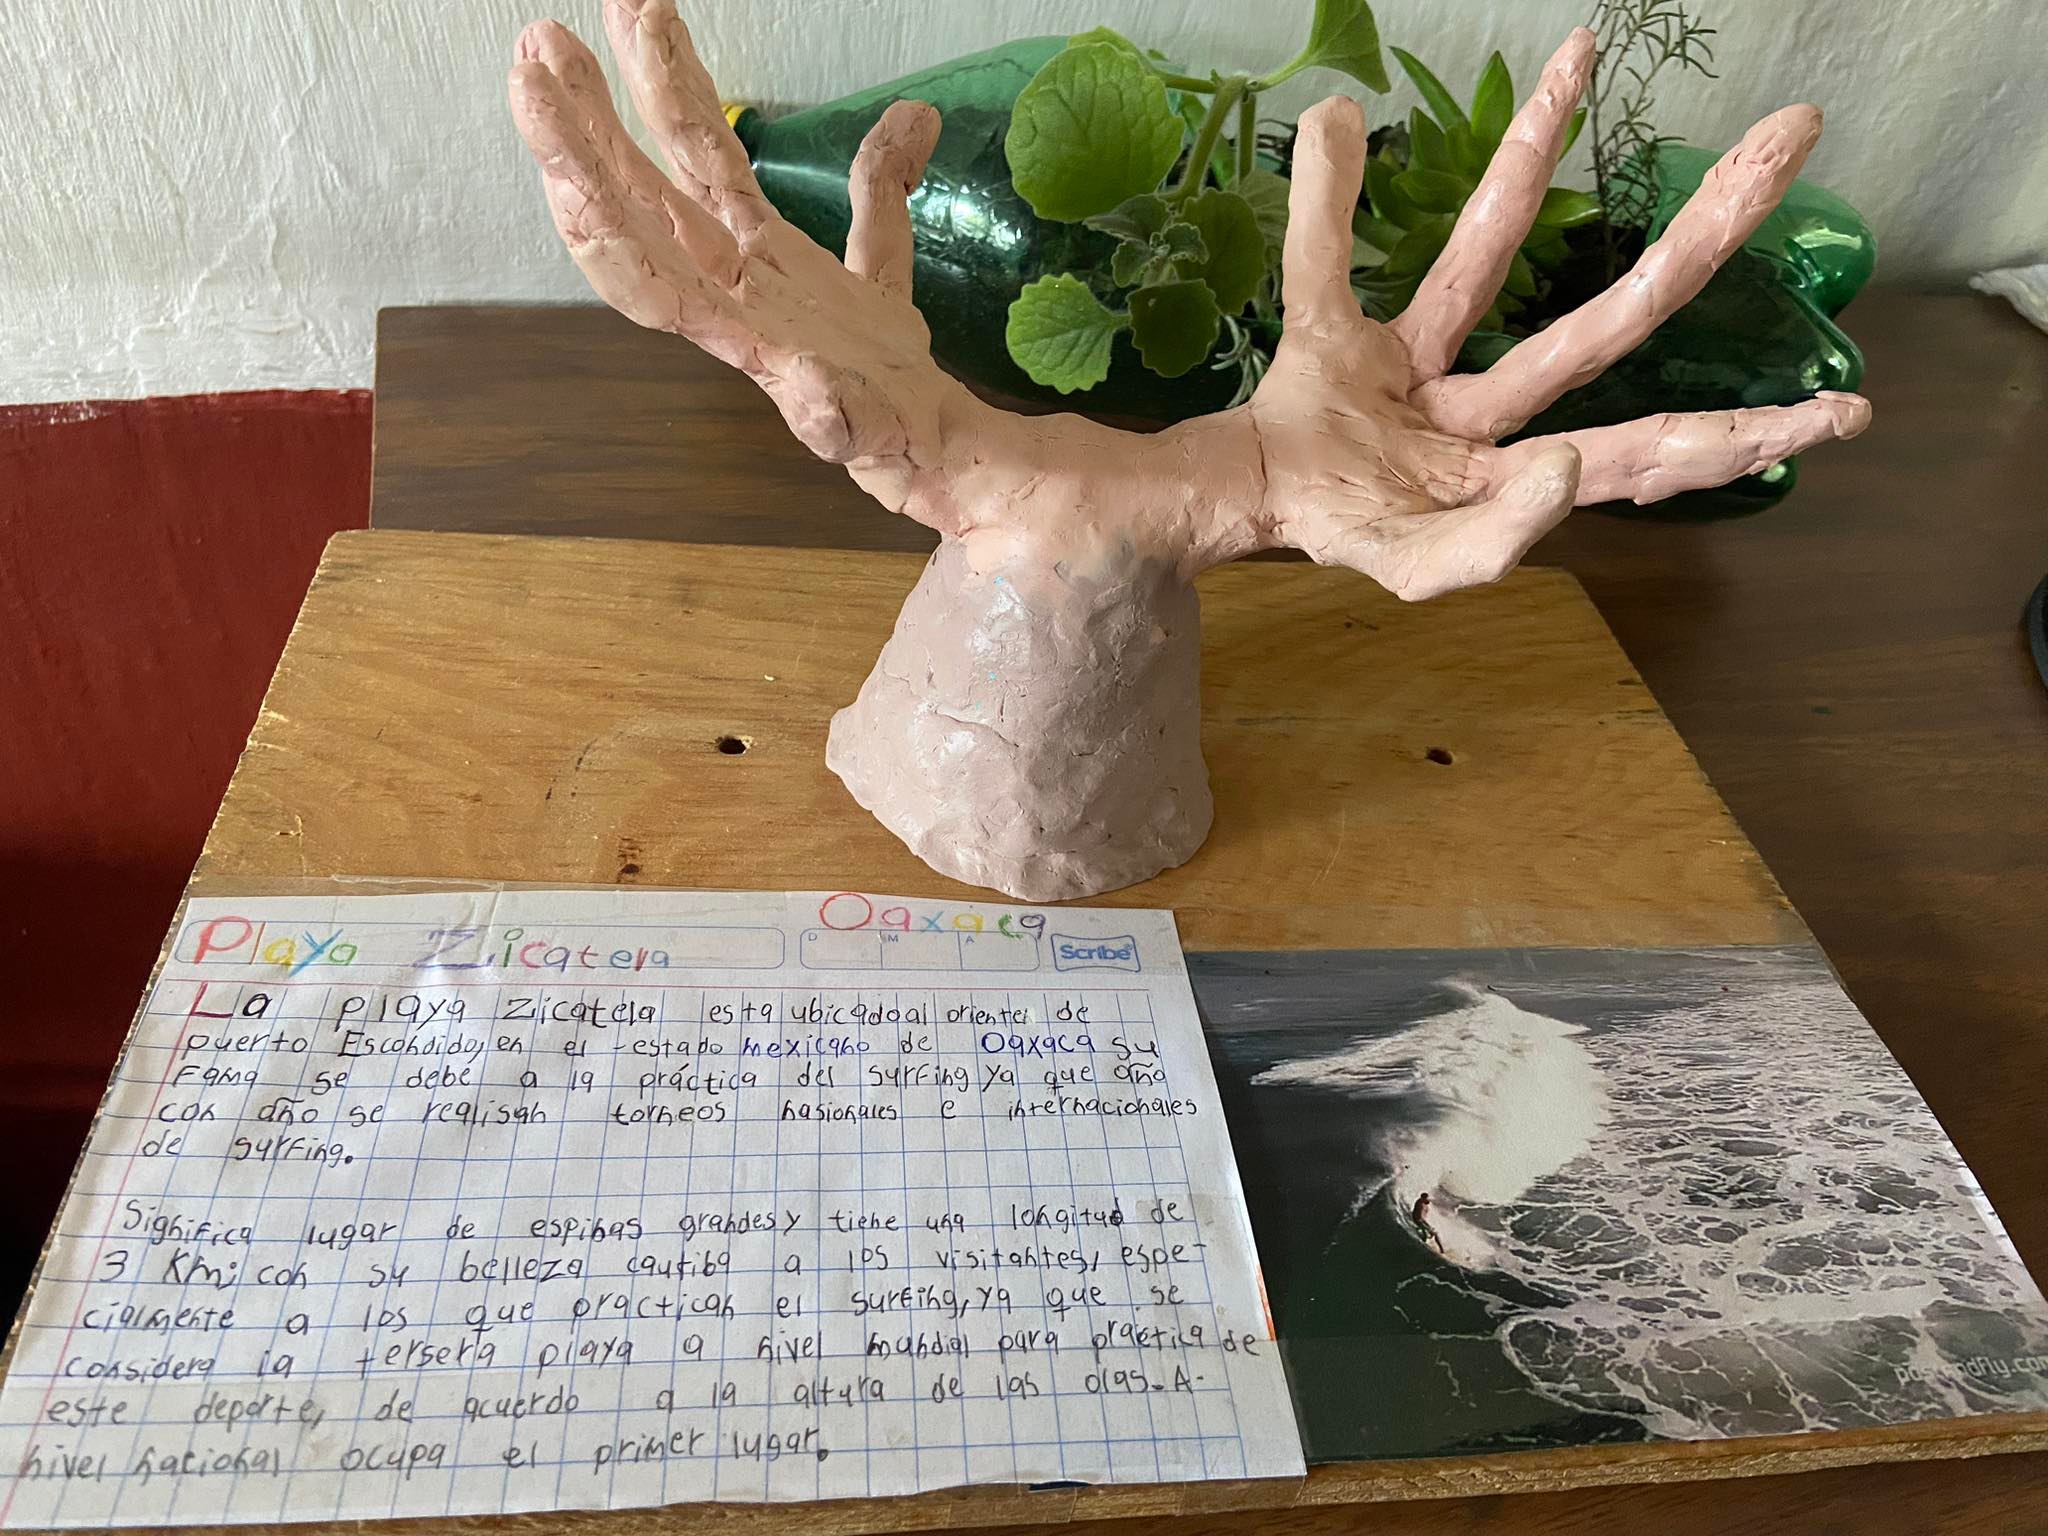 Oaxaca
Playa Zicatera
D M A Scribe
La playa Zicatela esta ubicadoal oriente de
puerto Escondido, en el estado mexicano de Oaxaca su
Fama se debe a la práctica del surfing ya que año
con año se realisan torneos nasionales e internacionales
de surfing.
Significa lugar de espinas grandes y tiene una longitud de
3 Km; con su belleza cautiba a los visitantes, espe-
cialmente a los que practican el surfing, ya que se
considera la tersera playa a nivel mundial para práctica de
este deporte, de acuerdo a la altura de las olas. A-
nivel nacional ocupa el primer lugar.